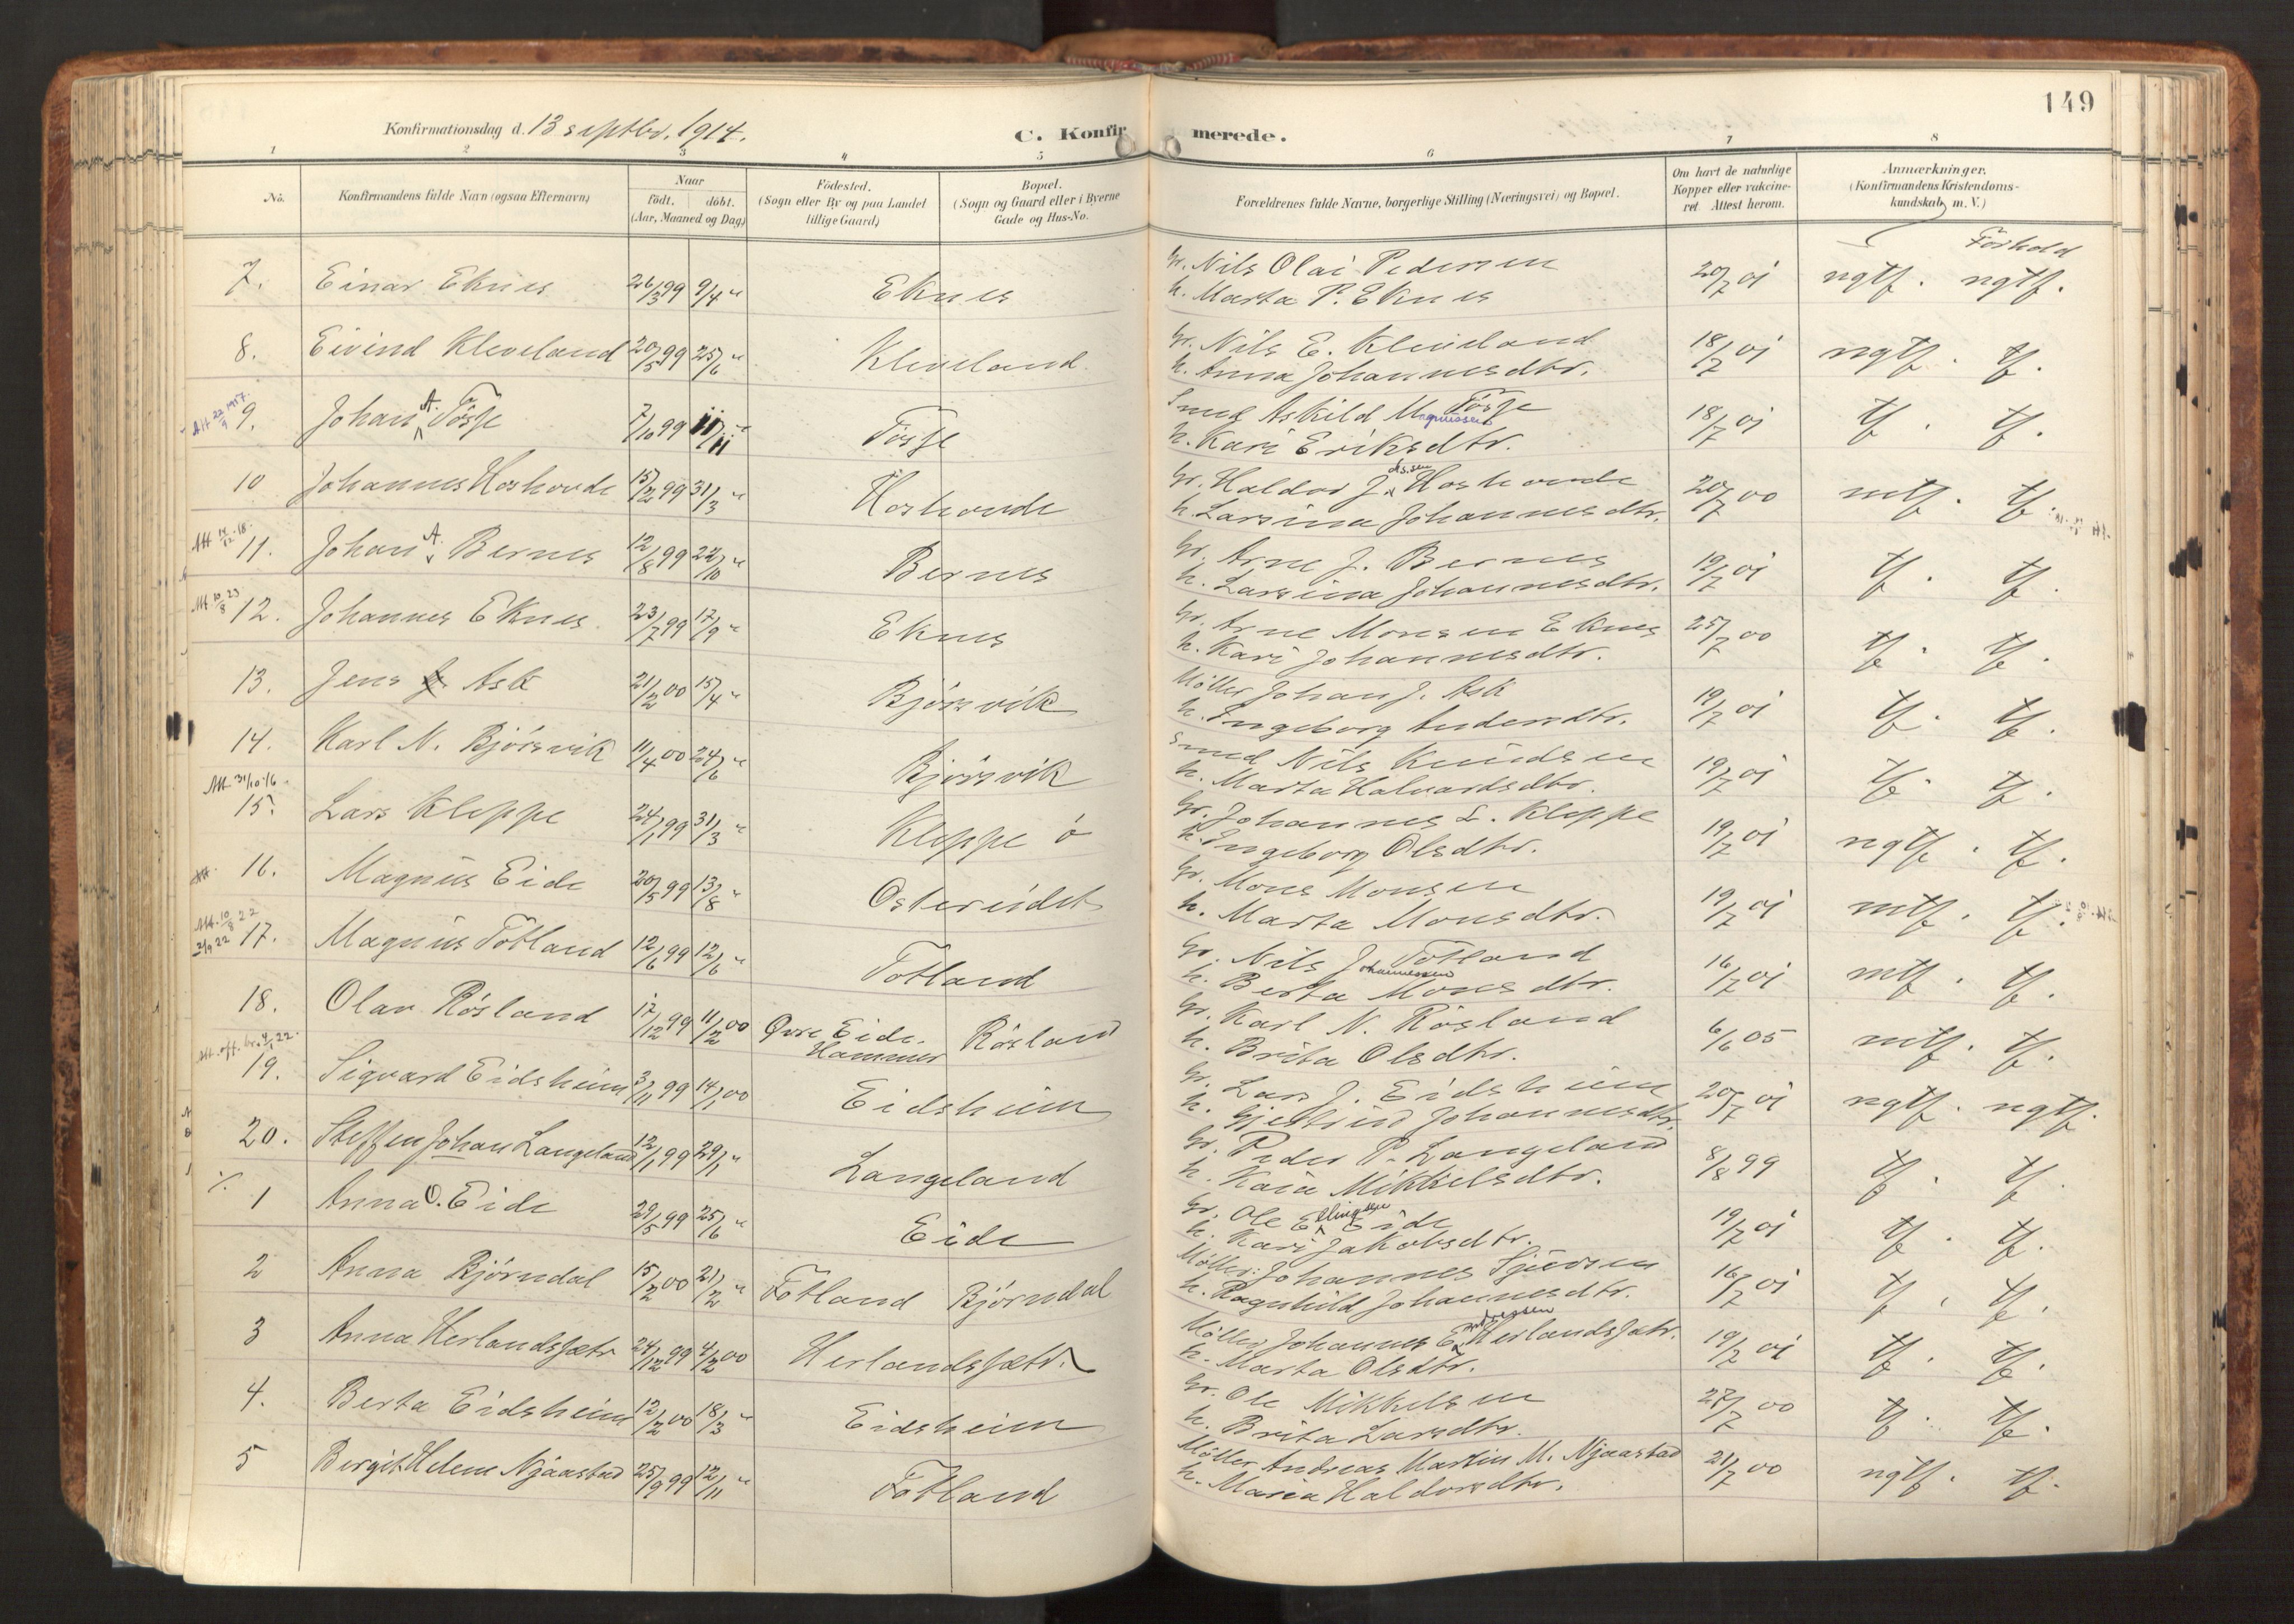 149
Konfirmationsdag d. 13 septbr. 1914.
C. Konfirmerede.
1 2 3 4 5 6 7 8
No. Konfirmandens fulde Navn (ogsaa Efternavn) Naar født. døbt. (Aar, Maaned og Dag) Fødested. (Sogn eller By og paa Landet tillige Gaard) Bopæl. (Sogn og Gaard eller i Byerne Gade og Hus-No. Forældrenes fulde Navne, borgerlige Stilling (Næringsvei) og Bopæl. Om havt de naturlige Kopper eller vakcineret. Attest herom. Anmærkninger. (Konfirmandens Kristendomskundskab m. V.)
Forhold
7. Einar Eknes 26/3 99 9/4 " Eknes Gr. Nils Olai Pedersen 20/7 01 ngtf. ngtf.
h. Marta P. Eknes
8. Eivind Kleveland 20/5 99 25/6 " Kleveland Gr. Nils E. Kleveland 18/7 01 ngtf. tf.
h. Anna Johannesdtr.
Att 22/9 1957.
9. Johan A. Tösse 7/10 99 11/11 " Tösse Smed Askild Magnussen Tösse 18/7 01 tf. tf.
h. Kari Eriksdtr.
10 Johannes Hoshovde 15/2 99 31/3 " Hoshovde Gr. Haldor J. Hoshovde 20/7 00 mtf. tf.
h. Larsina Johannesdtr.
11. Johan A. Bernes 12/8 99 22/10 " Bernes Gr. Arne J. Bernes 19/7 01 tf. tf.
h. Larsina Johannesdtr.
Att 10/8 23
12. Johannes Eknes 23/7 99 17/9 " Eknes Gr. Arne Monsen Eknes 25/7 00 tf. tf.
h. Kari Johannesdtr.
13. Jens Ask 21/2 00 15/4 " Björsvik Möller Johan J. Ask 19/7 01 tf. tf.
h. Ingeborg Andersdtr.
14. Karl N. Björsvik 11/4 00 24/6 " Björsvik Smed Nils Knudsen 19/7 01 tf. tf.
h. Marta Halvardsdtr.
Att 31/10-16
15. Lars Kleppe 24/1 99 31/3 " Kleppe ö Gr. Johannes L. Kleppe 19/7 01 ngtf. tf.
h. Ingeborg Olsdtr.
16. Magnus Eide 20/5 99 13/8 " Ostereidet Gr. Mons Monsen 19/7 01 mtf. tf.
h. Marta Monsdtr.
Att. 10/8 22
21/9 22
17. Magnus Totland 12/6 99 12/6 " Totland Gr. Nils Johannessen Totland 16/7 01 mtf. tf.
h. Berta Monsdtr.
18. Olav Rösland 17/12 99 11/2 00 Øvre Eide. Hammer Rösland Gr. Karl N. Rösland 6/6 05 mtf. tf.
h. Brita Olsdtr.
19. Sigvard Eidsheim 3/11 99 14/1 00 Eidsheim Gr. Lars J. Eidsheim 20/7 01 ngtf. ngtf.
h. Gjertrud Johannesdtr.
20. Steffen Johan Langeland 12/1 99 29/1 " Langeland Gr. Peder P. Langeland 8/8 99 tf. tf.
h. Kaia Mikkelsdtr.
1 Anna O. Eide 29/5 99 25/6 " Eide Gr. Ole Ellingsen Eide 19/7 01 tf. tf.
h. Kari Jakobsdtr.
2 Anna Björndal 15/2 00 21/2 " Totland Björndal Möller: Johannes Sjursen 16/7 01 tf. tf.
h. Ragnhild Johannesdtr.
3 Anna Herlandssætr 24/12 99 4/2 00 Herlandssætr. Möller Johannes Herlandssætr. 19/7 01 tf. tf.
h. Marta Olsdtr.
4. Berta Eidsheim 12/2 00 18/3 " Eidsheim Gr. Ole Mikkelsen 27/7 00 tf. tf.
h. Brita Larsdtr.
5 Bergit Helene Njaastad 25/9 99 12/11 " Totland Möller Andreas Martin M. Njaastad 21/7 00 ngtf. tf.
h. Maria Haldorsdtr.